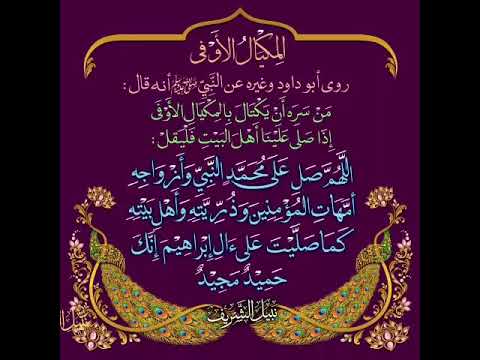 المِكْيَالُ الأَوْفَى
روى أبو داود وغيره عن النَّبِيّ ﷺ أنه قال:
مَنْ سَرَّهُ أَنْ يَكْتَالَ بِالمِكْيَالِ الأَوْفَى
إِذَا صَلَّى عَلَيْنَا أَهْلَ البَيْتِ فَلْيَقُلْ:
اللَّهُمَّ صَلِّ عَلَى مُحَمَّدٍ النَّبِيِّ وَأَزْوَاجِهِ
أُمَّهَاتِ المُؤْمِنِينَ وَذُرِّيَّتِهِ وَأَهْلِ بَيْتِهِ
كَمَا صَلَّيْتَ عَلَى ءَالِ إِبْرَاهِيمَ إِنَّكَ
حَمِيدٌ مَجِيدٌ
نبيل الشريف